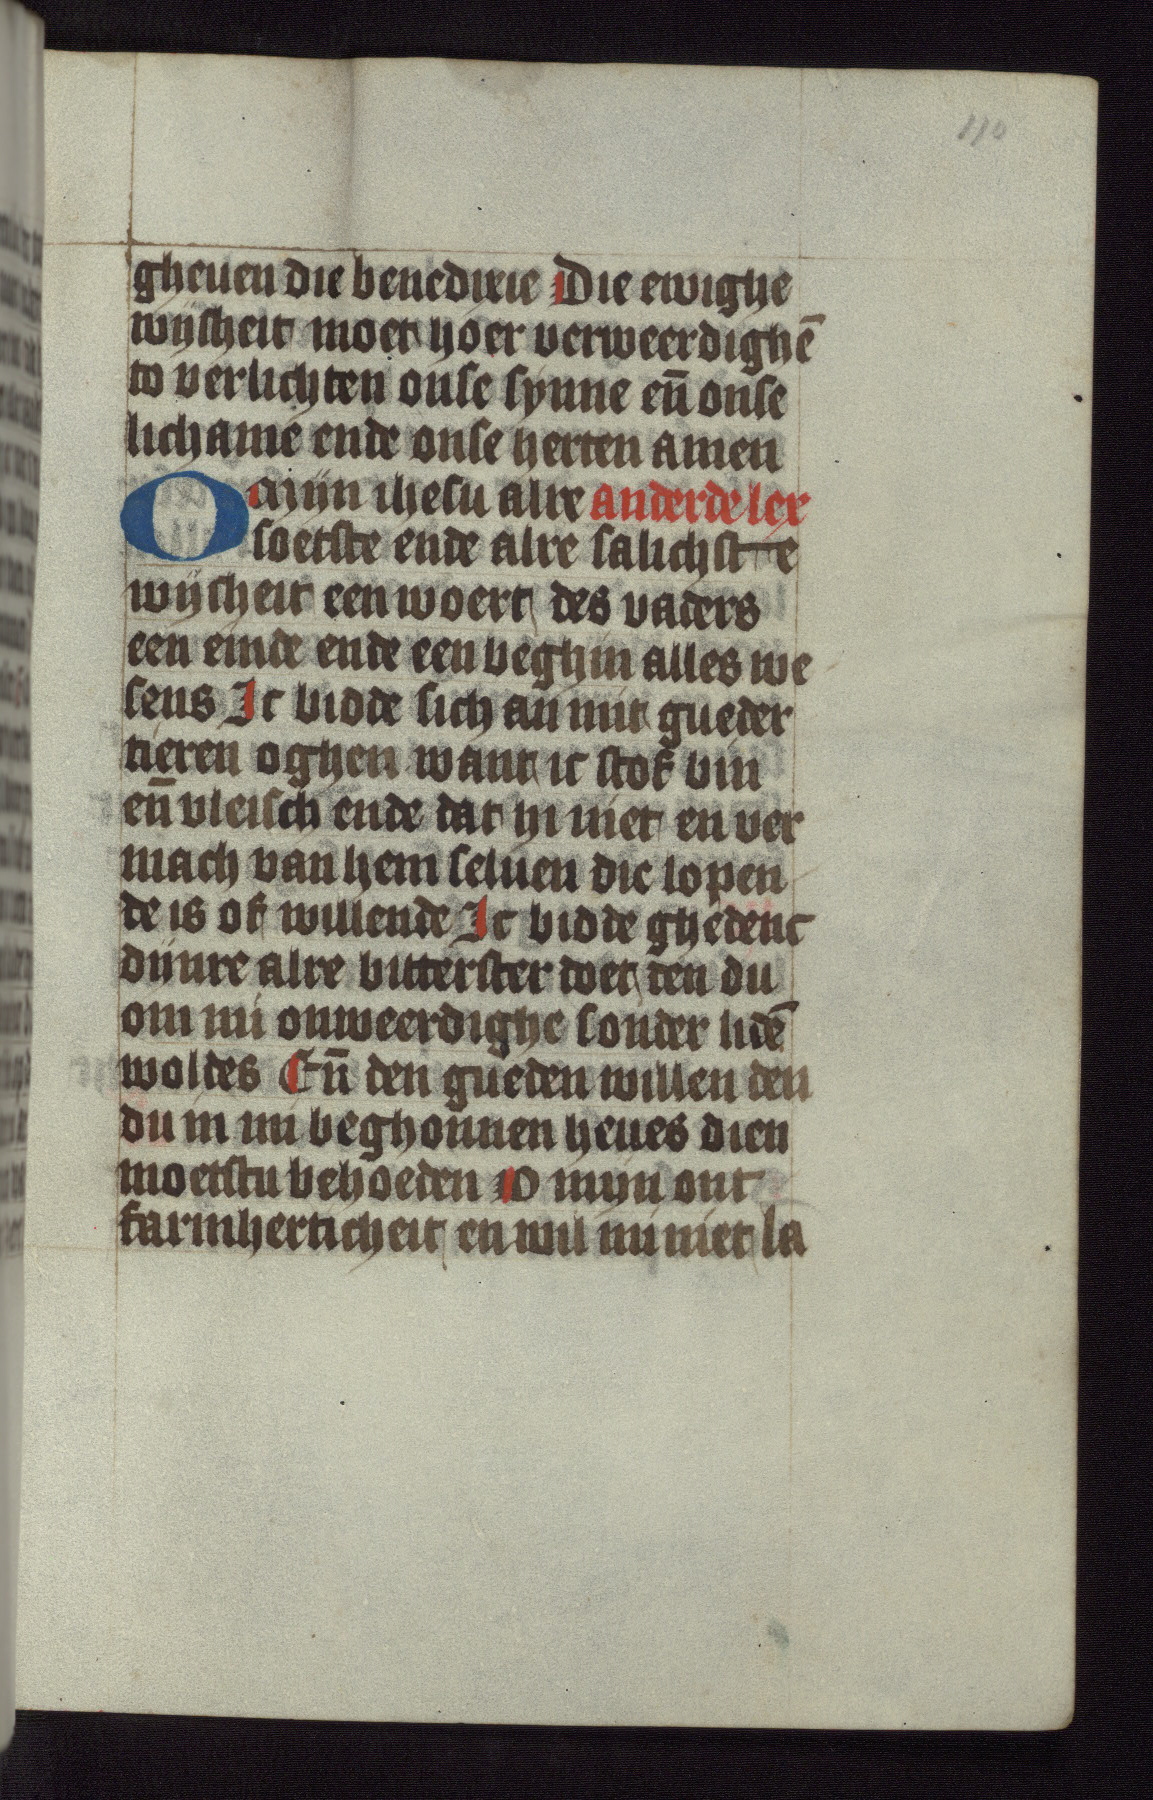 110
gheuen die benedixie Die ewighe
wijsheit moet hoer verweerdighē
to verlichten onse synne eñ onse
lichame ende onse herten amen
O Mijn ihesu alre anderde lex
soetste ende alre salichste
wijsheit een woert des vaders
een einde ende een beghin alles we
sens Ic bidde sich an mit gueder
tieren oghen want ic stof bin
eñ vleisch ende dat hi niet en ver
mach van hem seluen dic lopen
de is of willende Ic bidde ghedenc
dijnre alre bitterster doet den du
om mi onweerdighe sonder lidē
woldes Eñ den gueden willen den
du in mi beghonnen heues dien
moetstu behoeden O mijn ont
farmherticheit en wil mi niet la